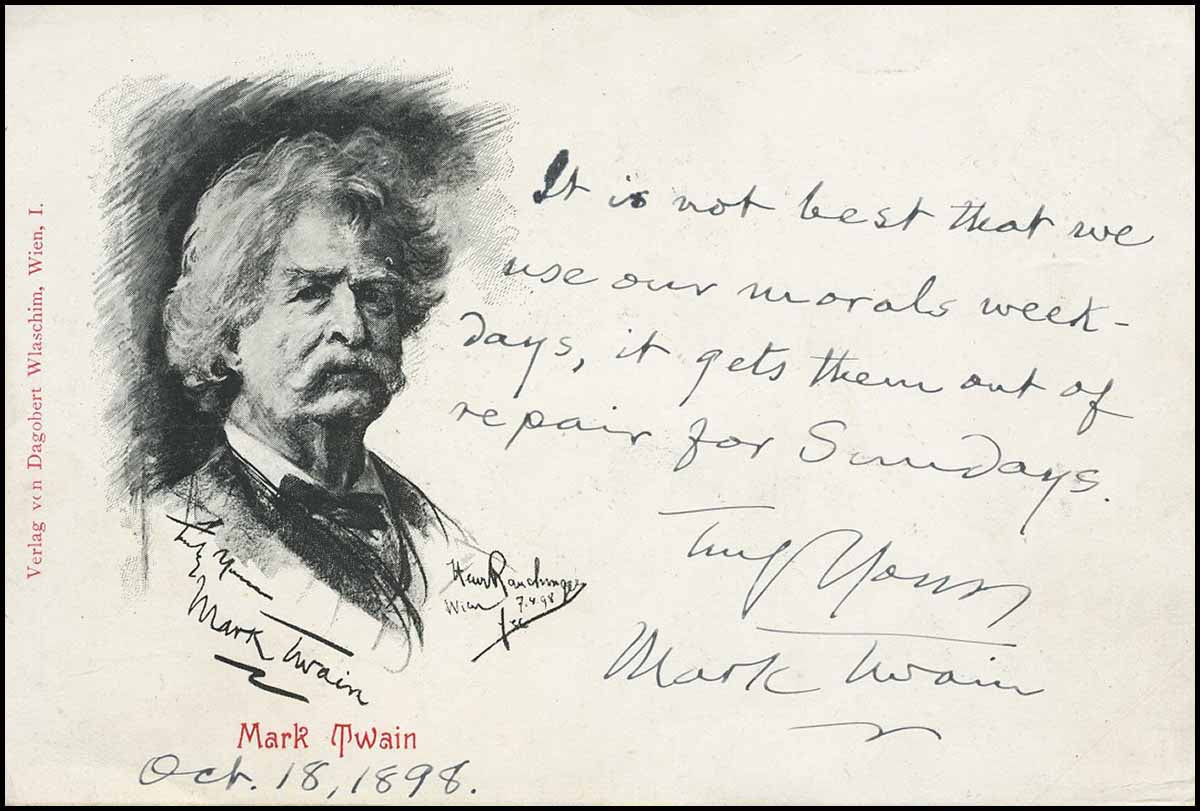 It is not best that we
use our morals week-
days, it gets them out of
repair for Sundays.
Truly Yours
Mark Twain
Truly Yours
Mark Twain
Wien 7.4.98
Mark Twain
Oct. 18, 1898.
Verlag von Dagobert Wlaschim, Wien, I.